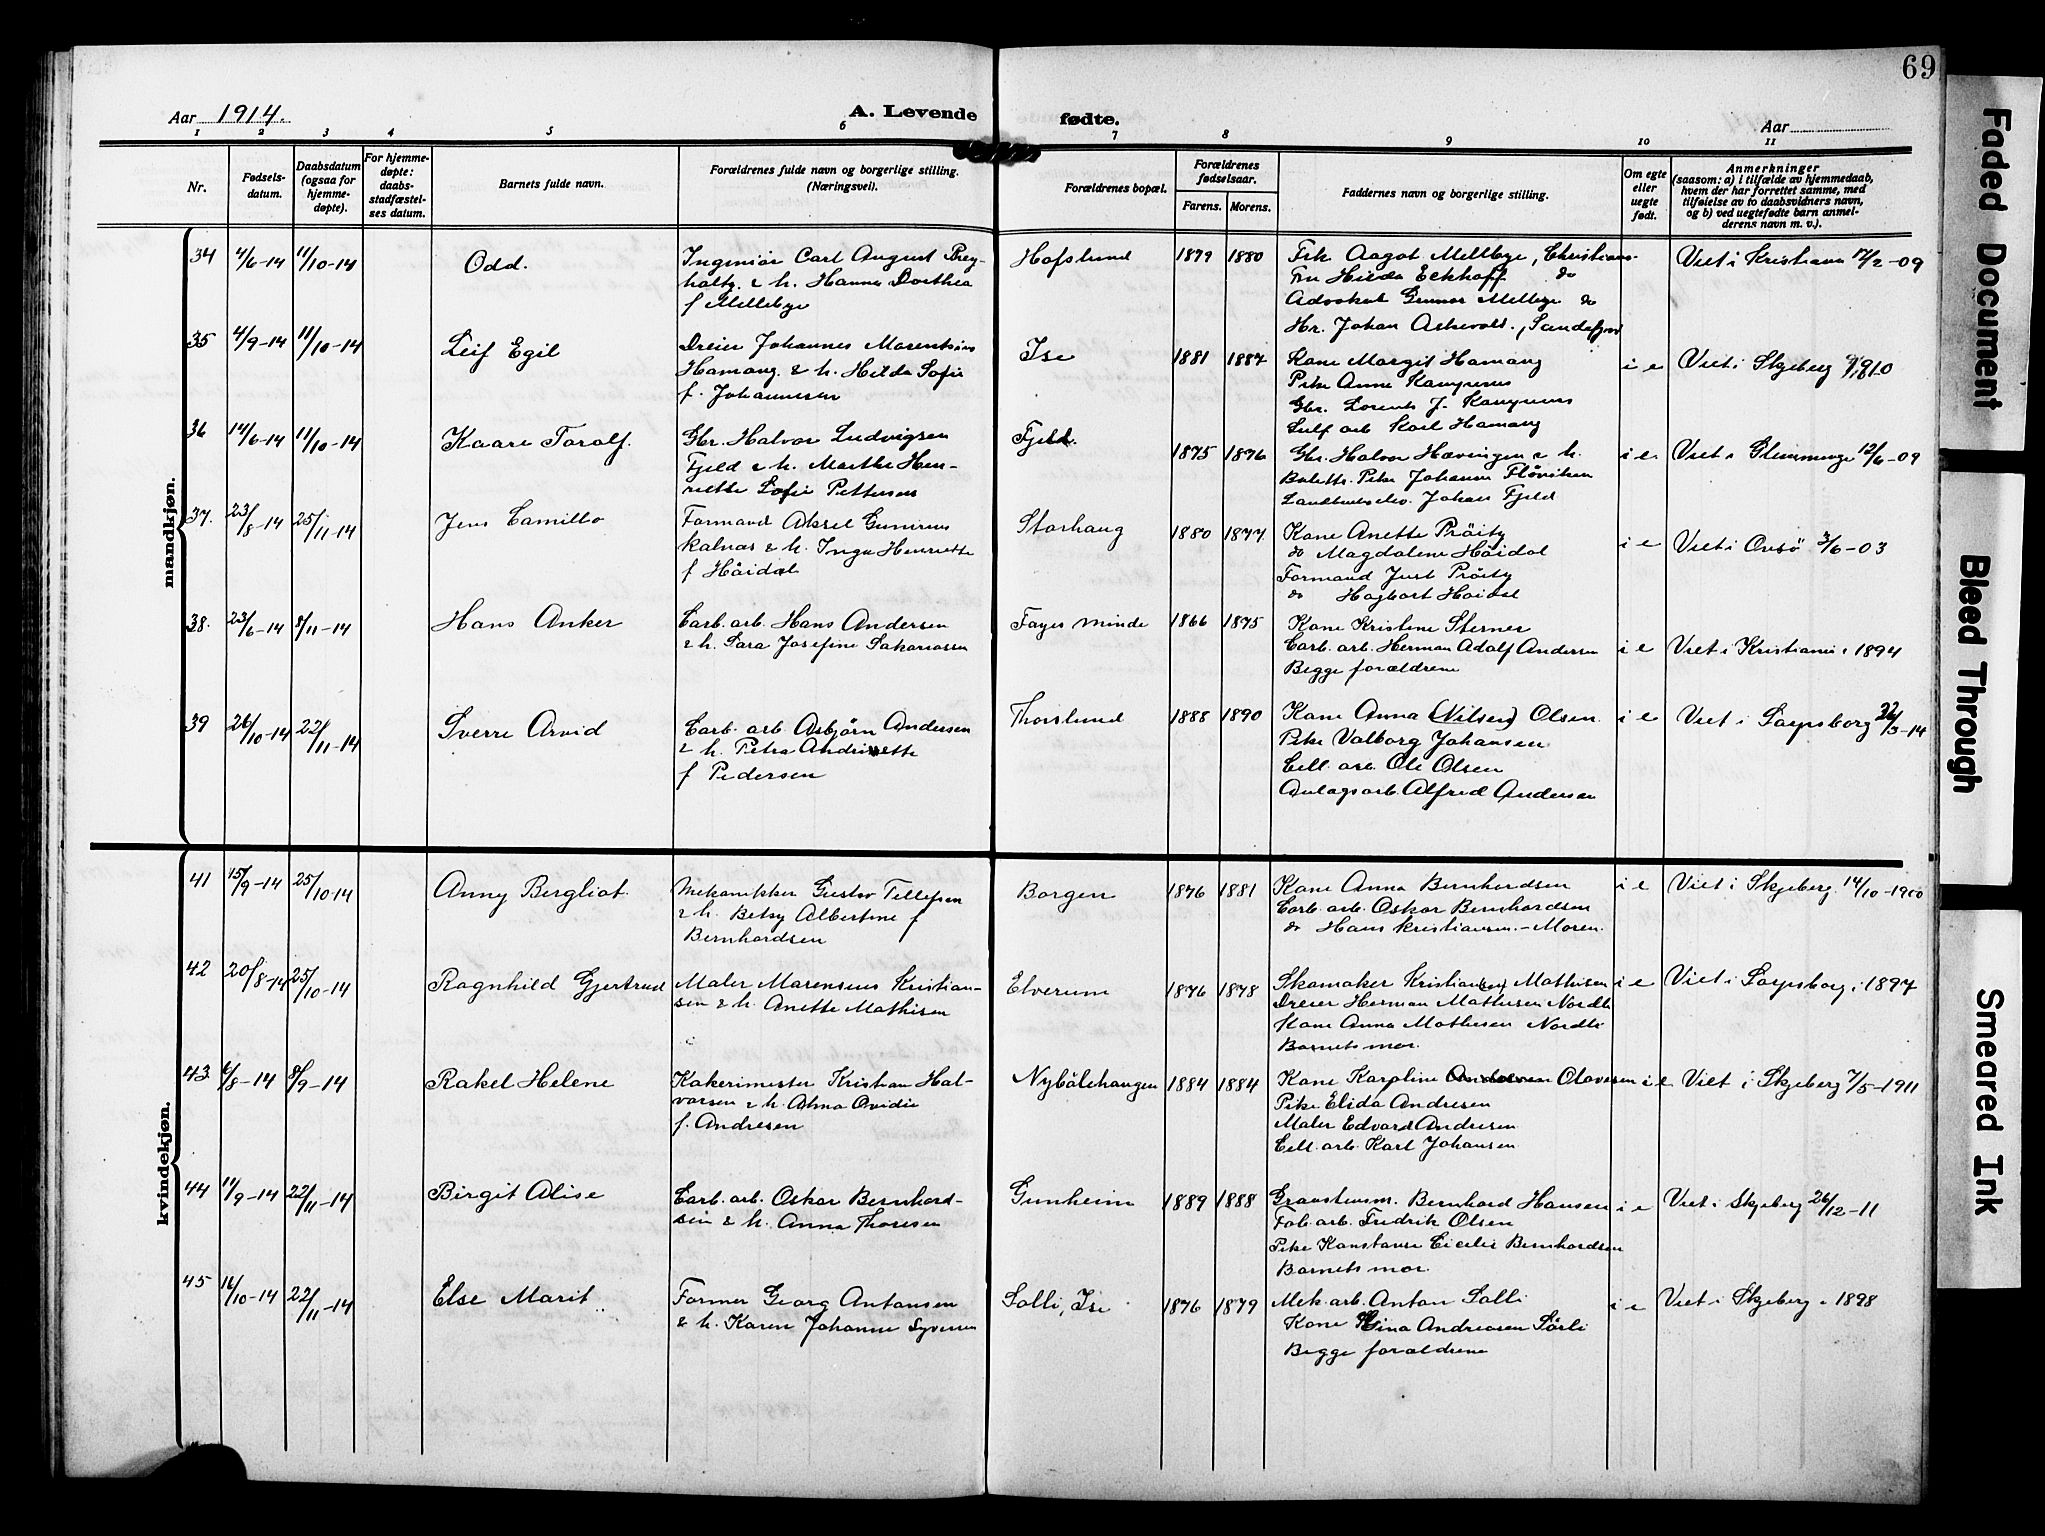 69
Aar 1914.
A. Levende
fødte.
Aar
1 2 3 4 5 6 7 8 9 10 11
Nr.
Fødsels-
datum.
Daabsdatum
(ogsaa for
hjemme-
døpte).
For hjemme-
døpte:
daabs-
stadfæstel-
ses datum.
Barnets fulde navn.
Forældrenes fulde navn og borgerlige stilling.
(Næringsvei).
Forældrenes bopæl.
Forældrenes
fødselsaar.
Farens. Morens.
Faddernes navn og borgerlige stilling.
Om egte
eller
uegte
født.
Anmerkninger
(saasom: a) i tilfælde av hjemmedaab,
hvem der har forrettet samme, med
tilføielse av to daabsvidners navn,
og b) ved uegtefødte barn anmel-
derens navn m. v.).
mandkjøn.
34 4/6-14 11/10-14 Odd.
Ingeniør Carl August
h. Hanna Dorthea
f Mellebye
Hafslund 1879 1880
Frk Aagot Mellbye, Christians-
Fru Hilda Eckhoff do
Advokat Gunnar Mellbye do
Hr. Johan Askevold, Sandefjord
Viet i Kristiania 17/2-09
35 4/9-14 11/10-14 Leif Egil
Dreier Johannes Marentsius
Hamang. & h. Hilda Sofie
f. Johannesen
Ise 1881 1887
Kone Margit Hamang
Pike Anna
Gbr. Lorents J.
Sulf arb Karl Hamang
i e Viet i Skjeberg 1910
36 14/6-14 11/10-14 Kaare Toralf.
Gbr. Halvor Ludvigsen
Fjeld & h. Marthe Hen-
riette Sofie Pettersen
Fjeld. 1875 1876
Gbr. Halvor Hævingen & h.
Pike Johanne Fløviken
Johan Fjeld
i e Viet i Glemminge 12/6-09
37. 23/8-14 25/11-14 Jens Camillo
Formand Aksel Gunerius
Kalnæs & h. Inga Henriette
f Høidal
Storhaug 1880 1877
Kone Anette Prøitz
do Magdalene Høidal
Formand Just Prøitz
do Hagbart Høidal
i e Viet i Onsø 3/6-03
38. 23/6-14 8/11-14 Hans Anker
Carb. arb. Hans Andersen
& h. Sara Josefine Sakariassen
Fager minde 1866 1875
Kone Kristine Sterner
Carb. arb. Herman Adolf Andersen
Begge forældrene
i e Viet i Kristiania i 1894
39 26/10-14 22/11-14 Sverre Arvid
Carb. arb. Asbjørn Andersen
& h. Petra Andrinette
f Pedersen
Thorslund 1888 1890
Kone Anna (Nilsen) Olsen.
Pike Valborg Johansen
Cell. arb. Ole Olsen
Anlægsarb. Alfred Andersen
i e Viet i Sarpsborg 22/3-14
kvindekjøn.
41 15/9-14 25/10-14 Anny Bergliot.
Mekanikker Gustav Tellefsen
& h. Betsy Albertine f
Bernhardsen
Borgen 1876 1881
Kone Anna Bernhardsen
Carb. arb. Oskar Bernhardsen
do Hans Kristiansen.-Moren.
i e Viet i Skjeberg 14/10-1900
42 20/8-14 25/10-14 Ragnhild Gjertrud
Maler Marensius Kristian-
sen & h. Anette Mathisen
Elverum 1876 1878
Skomaker Kristian Mathisen
Dreier Herman Mathisen Nordli
Kone Anna Mathisen Nordli
Barnets mor.
i e Viet i Sarpsborg i 1897
43 6/8-14 8/9-14 Rakel Helene
Kakerimester Kristian Hal-
vorsen & h. Alma Ovidie
f. Andresen
Nybølehaugen 1884 1884
Kone Karoline Olavesen
Pike Elida Andresen
Maler Edvard Andresen
Cell. arb. Karl Johansen
i e Viet i Skjeberg 7/5-1911
44 14/9-14 22/11-14 Birgit Alise
Carb. arb. Oskar Bernhard-
sen & h. Anna Thoresen
Gunheim 1889 1888
Bernhard Hansen
Fab. arb. Fredrik Olsen
Pike Konstanse Cicelie Bernhardsen
Barnets mor.
i e Viet i Skjeberg 26/12-11
45 14/10-14 22/11-14 Else Marit
Former Georg Antonsen
& h. Karen Johanne Syversen
Solli, Ise 1876 1879
Mek. arb. Anton Solli
Kone Lina Andreasen Sørli
Begge forældrene
i e Viet i Skjeberg i 1898
Faded Document
Bleed Through
Smeared Ink